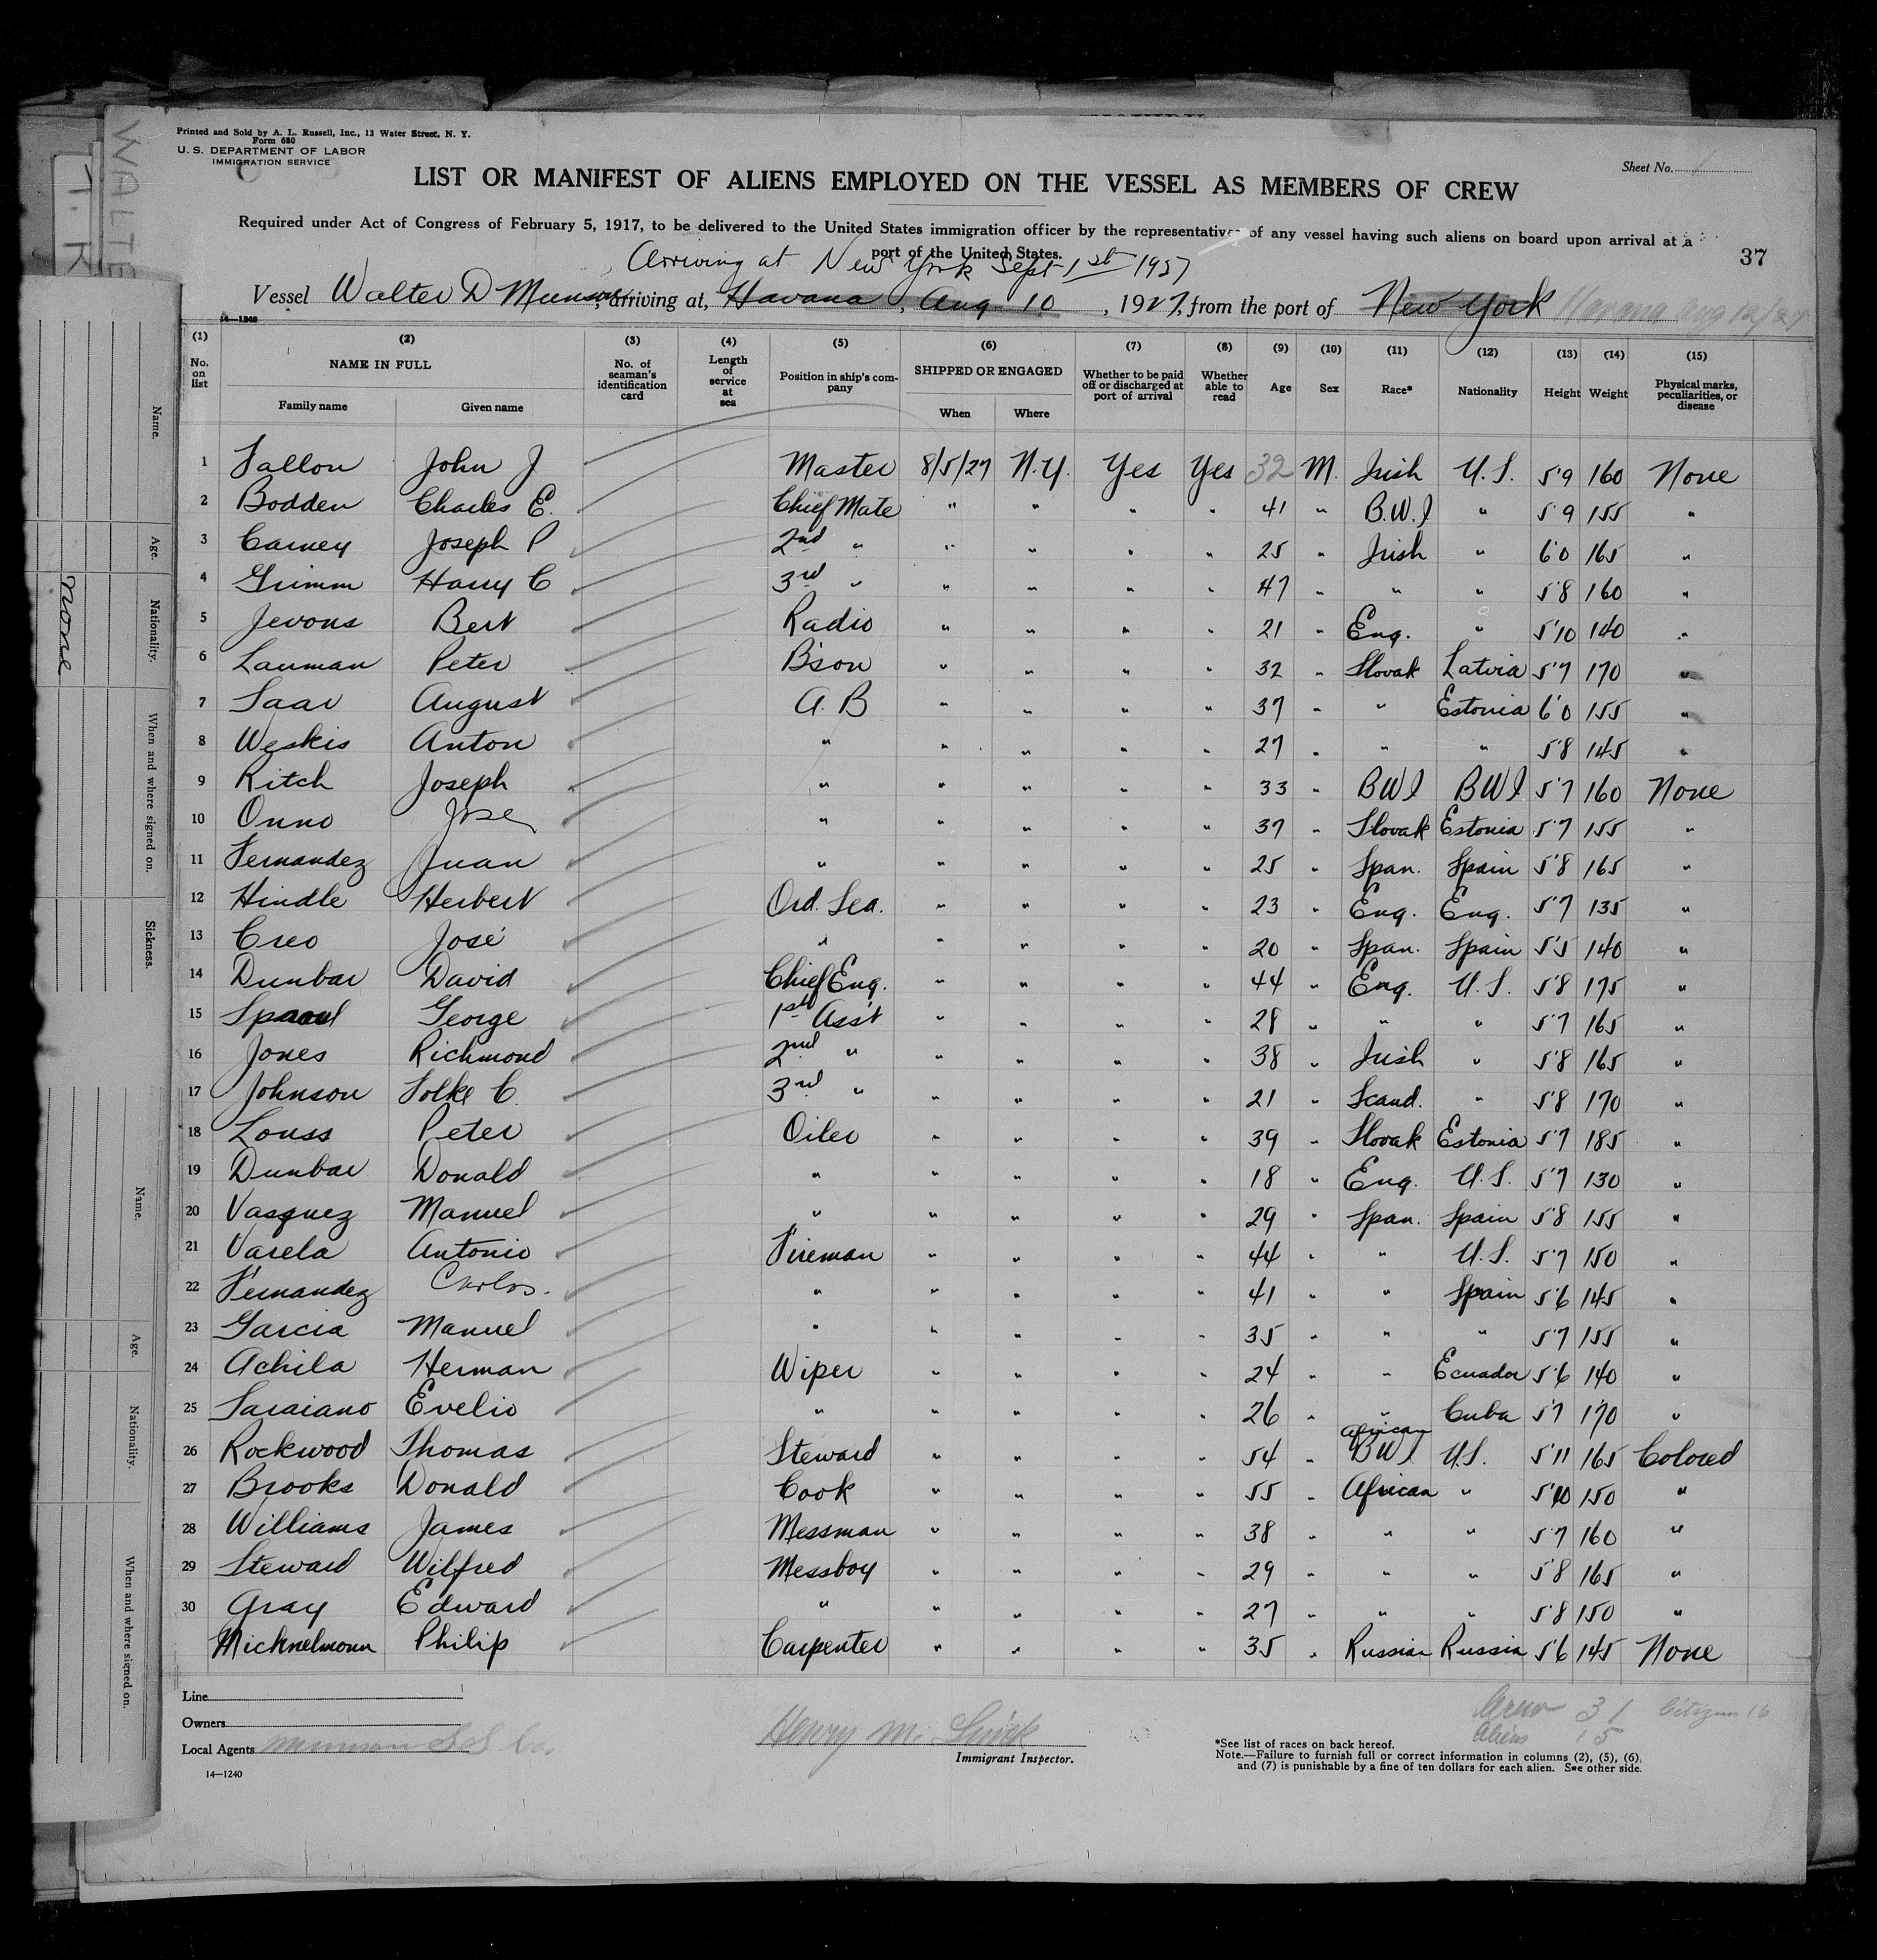 Printed and Sold by A. L. Russell, Inc., 13 Water Street, N. Y.
Form 680
U. S. DEPARTMENT OF LABOR
IMMIGRATION SERVICE
Sheet No. 1
LIST OR MANIFEST OF ALIENS EMPLOYED ON THE VESSEL AS MEMBERS OF CREW
Required under Act of Congress of February 5, 1917, to be delivered to the United States immigration officer by the representatives of any vessel having such aliens on board upon arrival at a
port of the United States.
37
Arriving at New York Sept 1st 1927
Vessel Walter D Munson, arriving at, Havana, Aug 10, 1927, from the port of New York Havana Aug 12/27
14—1240
(1) (2) (3) (4) (5) (6) (7) (8) (9) (10) (11) (12) (13) (14) (15)
No. on list NAME IN FULL No. of seaman's identification card Length of service at sea Position in ship's company SHIPPED OR ENGAGED Whether to be paid off or discharged at port of arrival Whether able to read Age Sex Race* Nationality Height Weight Physical marks, peculiarities, or disease
Family name Given name When Where
1 Fallon John J Master 8/5/27 N.Y. Yes Yes 32 M. Irish U.S. 5'9 160 None
2 Bodden Charles E. Chief Mate " " " " 41 " B.W.I " 5'9 155 "
3 Carney Joseph P 2nd " " " " " 25 " Irish " 6'0 165 "
4 Grimm Harry C 3rd " " " " " 47 " " " 5'8 160 "
5 Jevons Bert Radio " " " " 21 " Eng. " 5'10 140 "
6 Lauman Peter B'son " " " " 32 " Slovak Latvia 5'7 170 "
7 Saar August A.B " " " " 37 " " Estonia 6'0 155 "
8 Weskis Anton " " " " " 27 " " " 5'8 145 "
9 Ritch Joseph " " " " " 33 " BWI BWI 5'7 160 None
10 Onno Jose " " " " " 37 " Slovak Estonia 5'7 155 "
11 Fernandez Juan " " " " " 25 " Span. Spain 5'8 165 "
12 Hindle Herbert Ord. Sea. " " " " 23 " Eng. Eng. 5'7 135 "
13 Creo José " " " " " 20 " Span. Spain 5'5 140 "
14 Dunbar David Chief Eng. " " " " 44 " Eng. U.S. 5'8 175 "
15 George 1st Ass't " " " " 28 " " " 5'7 165 "
16 Jones Richmond 2nd " " " " " 38 " Irish " 5'8 165 "
17 Johnson Folke C. 3rd " " " " " 21 " Scand. " 5'8 170 "
18 Louss Peter Oiler " " " " 39 " Slovak Estonia 5'7 185 "
19 Dunbar Donald " " " " " 18 " Eng. U.S. 5'7 130 "
20 Vasquez Manuel " " " " " 29 " Span. Spain 5'8 155 "
21 Varela Antonio Fireman " " " " 44 " " U.S. 5'7 150 "
22 Fernandez Carlos. " " " " " 41 " " Spain 5'6 145 "
23 Garcia Manuel " " " " " 35 " " " 5'7 155 "
24 Achila Herman Wiper " " " " 24 " " Ecuador 5'6 140 "
25 Saraiano Evelio " " " " " 26 " " Cuba 5'7 170 "
26 Rockwood Thomas Steward " " " " 54 " African BWI U.S. 5'11 165 Colored
27 Brooks Donald Cook " " " " 55 " African " 5'10 150 "
28 Williams James Messman " " " " 38 " " " 5'7 160 "
29 Steward Wilfred Messboy " " " " 29 " " " 5'8 165 "
30 Gray Edward " " " " " 27 " " " 5'8 150 "
Philip Carpenter " " " " 35 " Russian Russia 5'6 145 None
Line
Owners
Local Agents Munson S S Co.
14—1240
Henry M.
Immigrant Inspector.
Crew 31 Citizens 16
Aliens 15
*See list of races on back hereof.
Note.—Failure to furnish full or correct information in columns (2), (5), (6),
and (7) is punishable by a fine of ten dollars for each alien. See other side.
WALTE
Name.
Age.
Nationality.
None
When and where signed on.
Sickness.
Name.
Age.
Nationality.
When and where signed on.